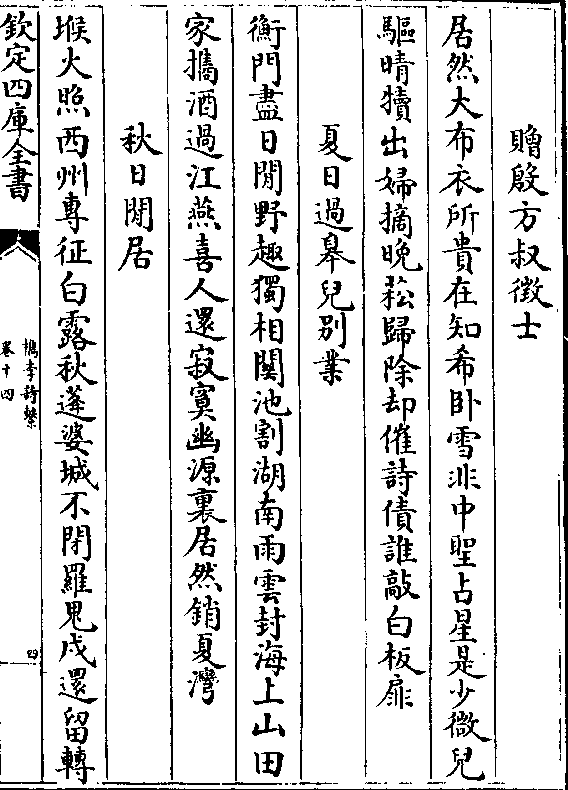 贈殷方叔徵士
居然大布衣所貴在知希卧雪非中聖占星是少微兒
驅晴犢出婦摘晚菘歸除却催詩債誰敲白板扉
夏日過皋兒別業
衡門盡日閒野趣獨相關池割湖南雨雲封海上山田
家攜酒過江燕喜人還寂寞幽源裏居然銷夏灣
秋日閒居
堠火照西州專征白露秋蓬婆城不閉羅鬼戍還留轉
欽定四庫全書
檇李詩繫
卷十四
四